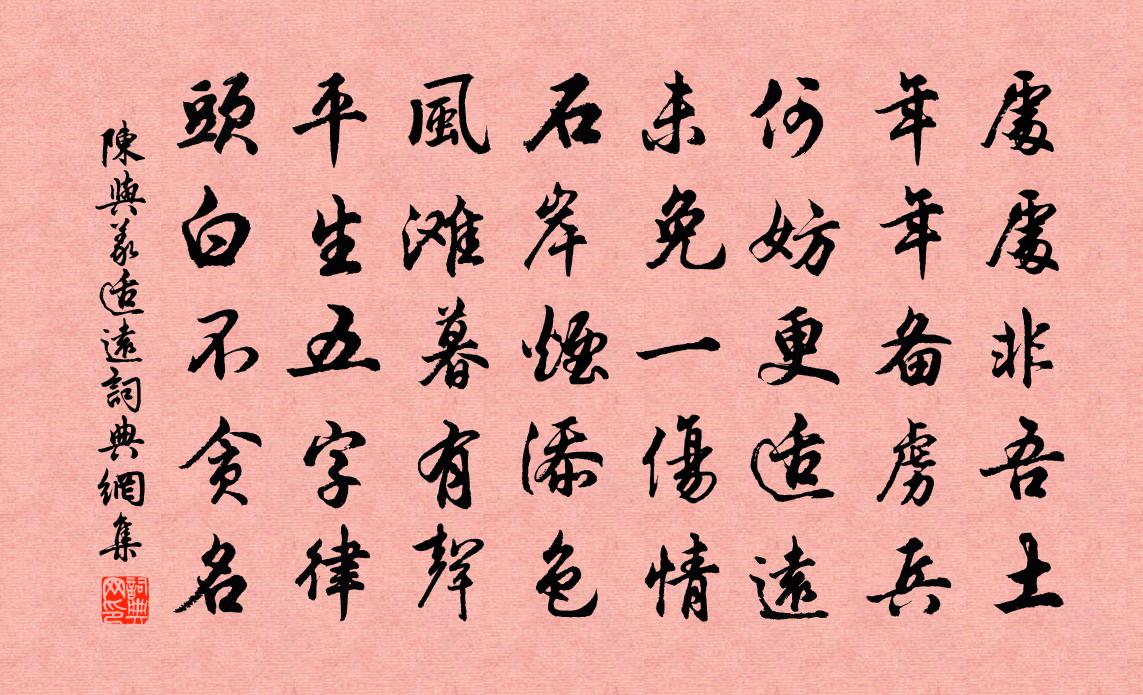 處處非吾土
年年备虜兵
何妨更适遠
未免一傷情
石岸煙添色
風滩暮有聲
平生五字律
頭白不貪名
陳與義适遠詞典網集
詞典网印